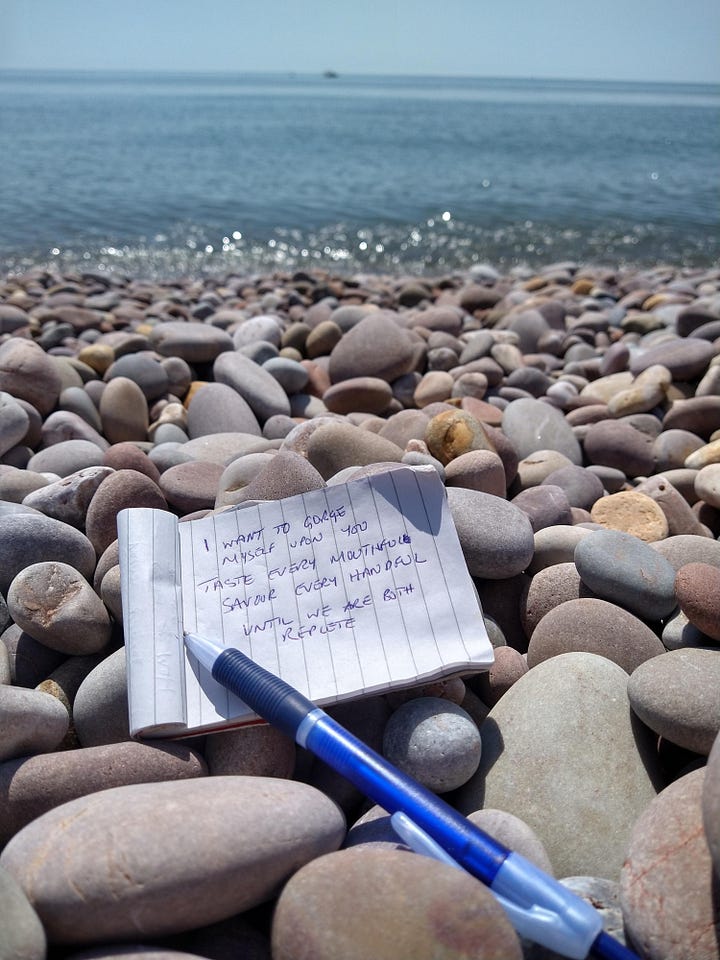 I WANT TO GORGE
MYSELF UPON YOU
TASTE EVERY MOUTHFULL
SAVOUR EVERY HANDFUL
UNTIL WE ARE BOTH
REPLETE